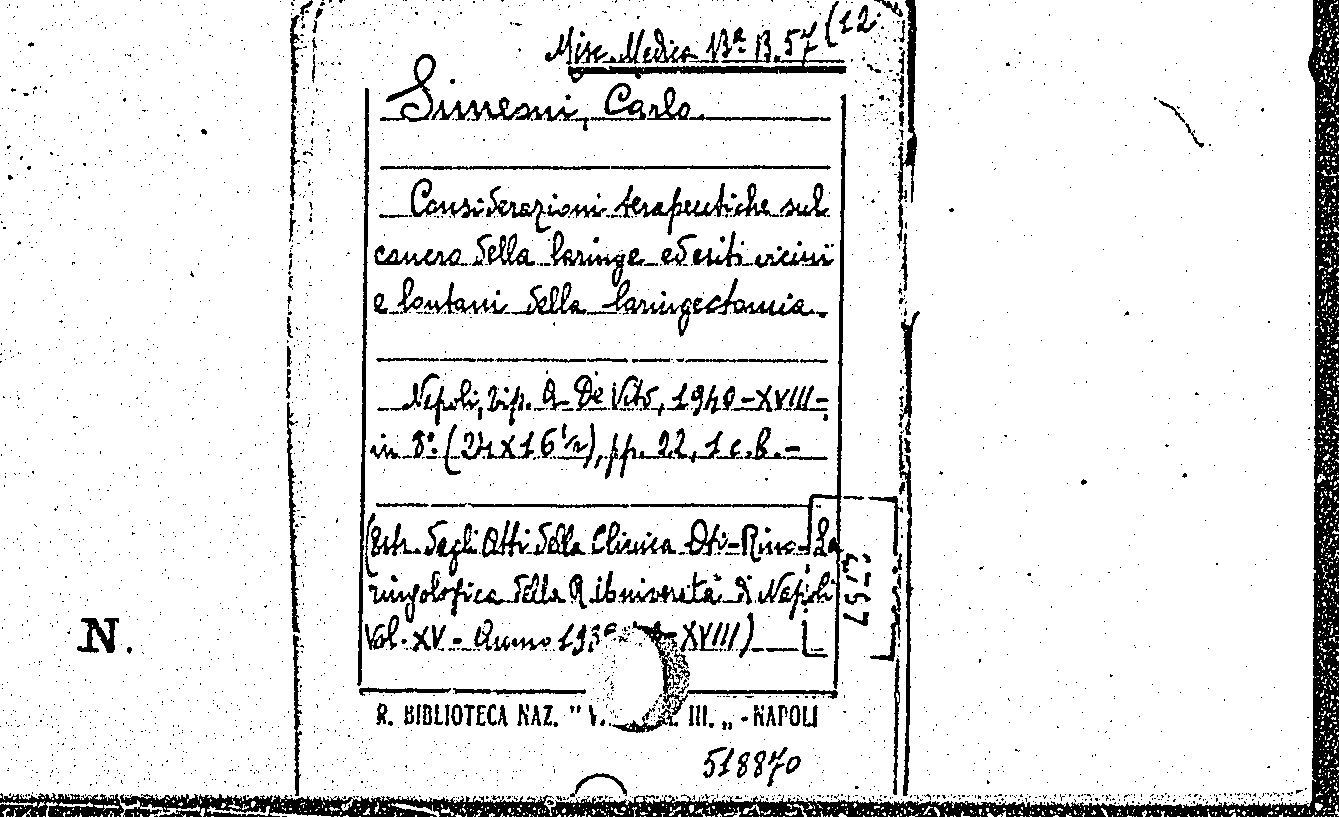 Misc. Medica Bª B. 57 (12
Simeoni, Carlo.
Considerazioni terapeutiche sul
cancro della laringe ed esiti vicini
e lontani della laringectomia.
Napoli, tip. A. De Vito, 1940-XVIII-
in 8º (24x16 1/2), pp. 22, 1 c.b.-
(Estr. dagli Atti della Clinica Oti-Rino-La
ringologica della R. Università di Napoli
Vol. XV - Anno XVIII)
N.
R. BIBLIOTECA NAZ. " V. III. „ - NAPOLI
518870